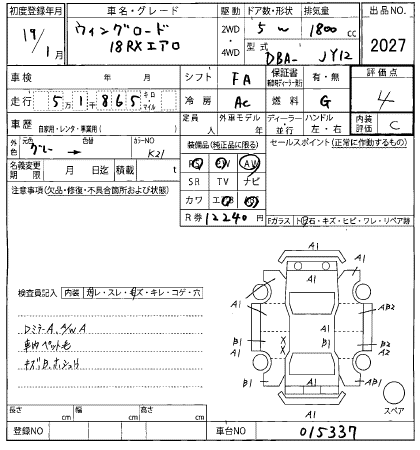 初度登録年月 車名・グレード 駆動 ドア数・形状 排気量 出品NO.
19/1月 ウィングロード 18RXエアロ 2WD・4WD 5W 1800cc 2027
型式 DBA- JY12
車検 年 月 シフト FA 保証書 有・無 評価点
走行 5万1千865 キロ マイル 冷房 AC 燃料 G 4
車歴 自家用・レンタ・事業用( ) 定員 人 外車モデル 年 ディーラー・並行 ハンドル 左・右 内装評価 C
外色 元色 グレー → 色替 カラーNO K21
装備品(純正品に限る) セールスポイント(正常に作動するもの)
名義変更期限 月 日迄 積載 t
PS PW AW
SR TV ナビ
カワ エアB
R券 12240円
注意事項(欠品・修復・不具合箇所および状態)
Fガラス トビ石・キズ・ヒビ・ワレ・リペア跡
検査員記入 内装 スレ・キズ・キレ・コゲ・穴
DミラーA、A/WA
車内ペット毛
キズ、B、ホシュウ
A1
A1 A1 A1
A1 AB2
B1 X X B1 B2 A2
B1 A1 AB1
A1
スペア
長さ cm 幅 cm 高さ cm
登録NO 車台NO 015337